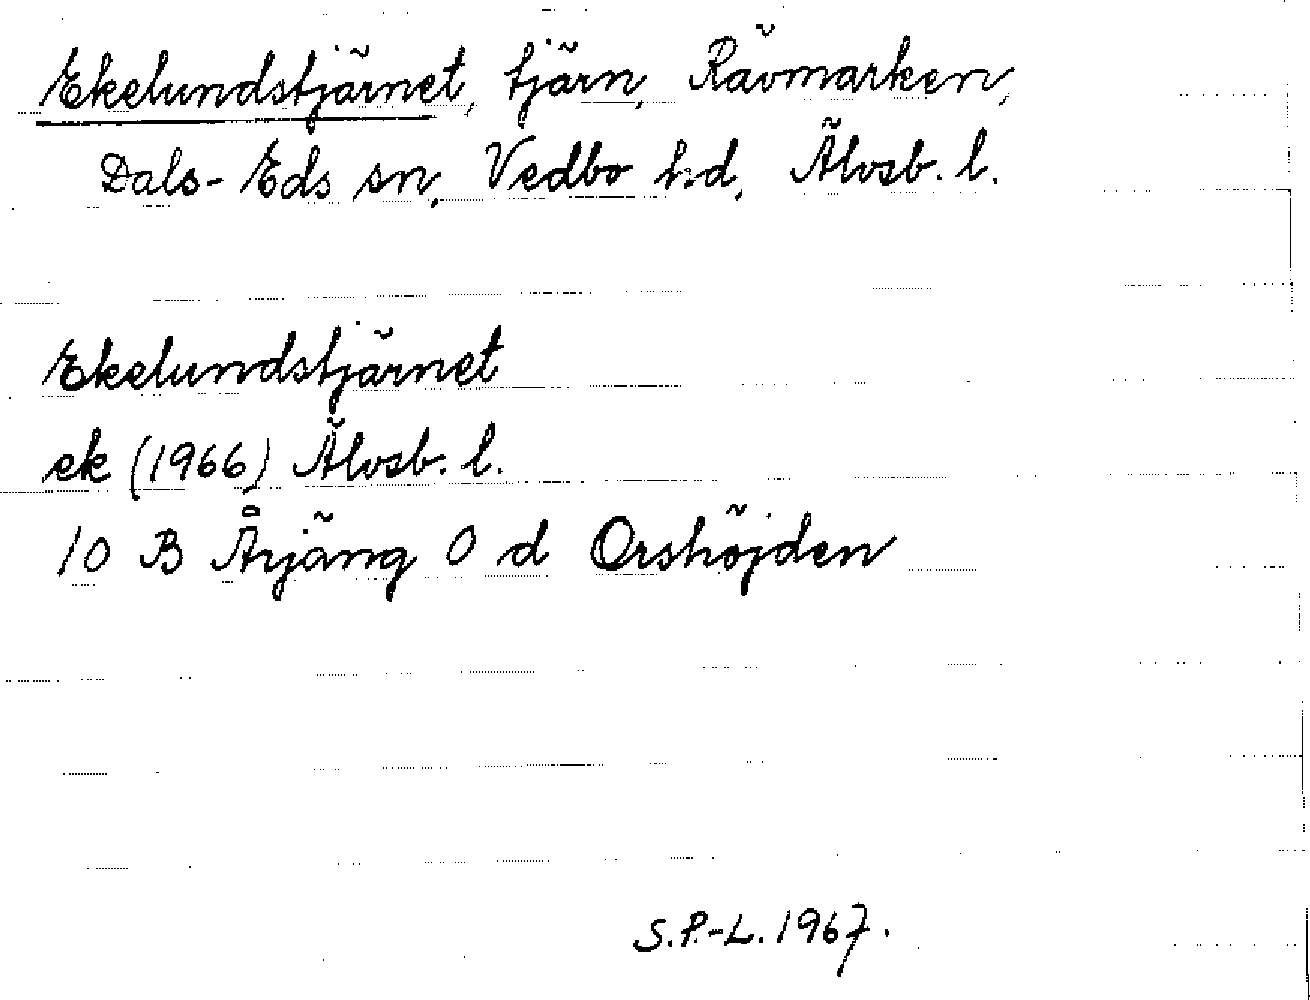 Ekelundstjärnet, tjärn, Rävmarken,
Dals-Eds sn, Vedbo hd, Älvsb. l.
Ekelundstjärnet
ek (1966) Älvsb. l.
10 B Årjäng 0 d Orshöjden
S.P.-L. 1967.